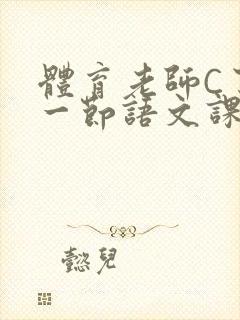 體育老師C
一節語文課
懿兒